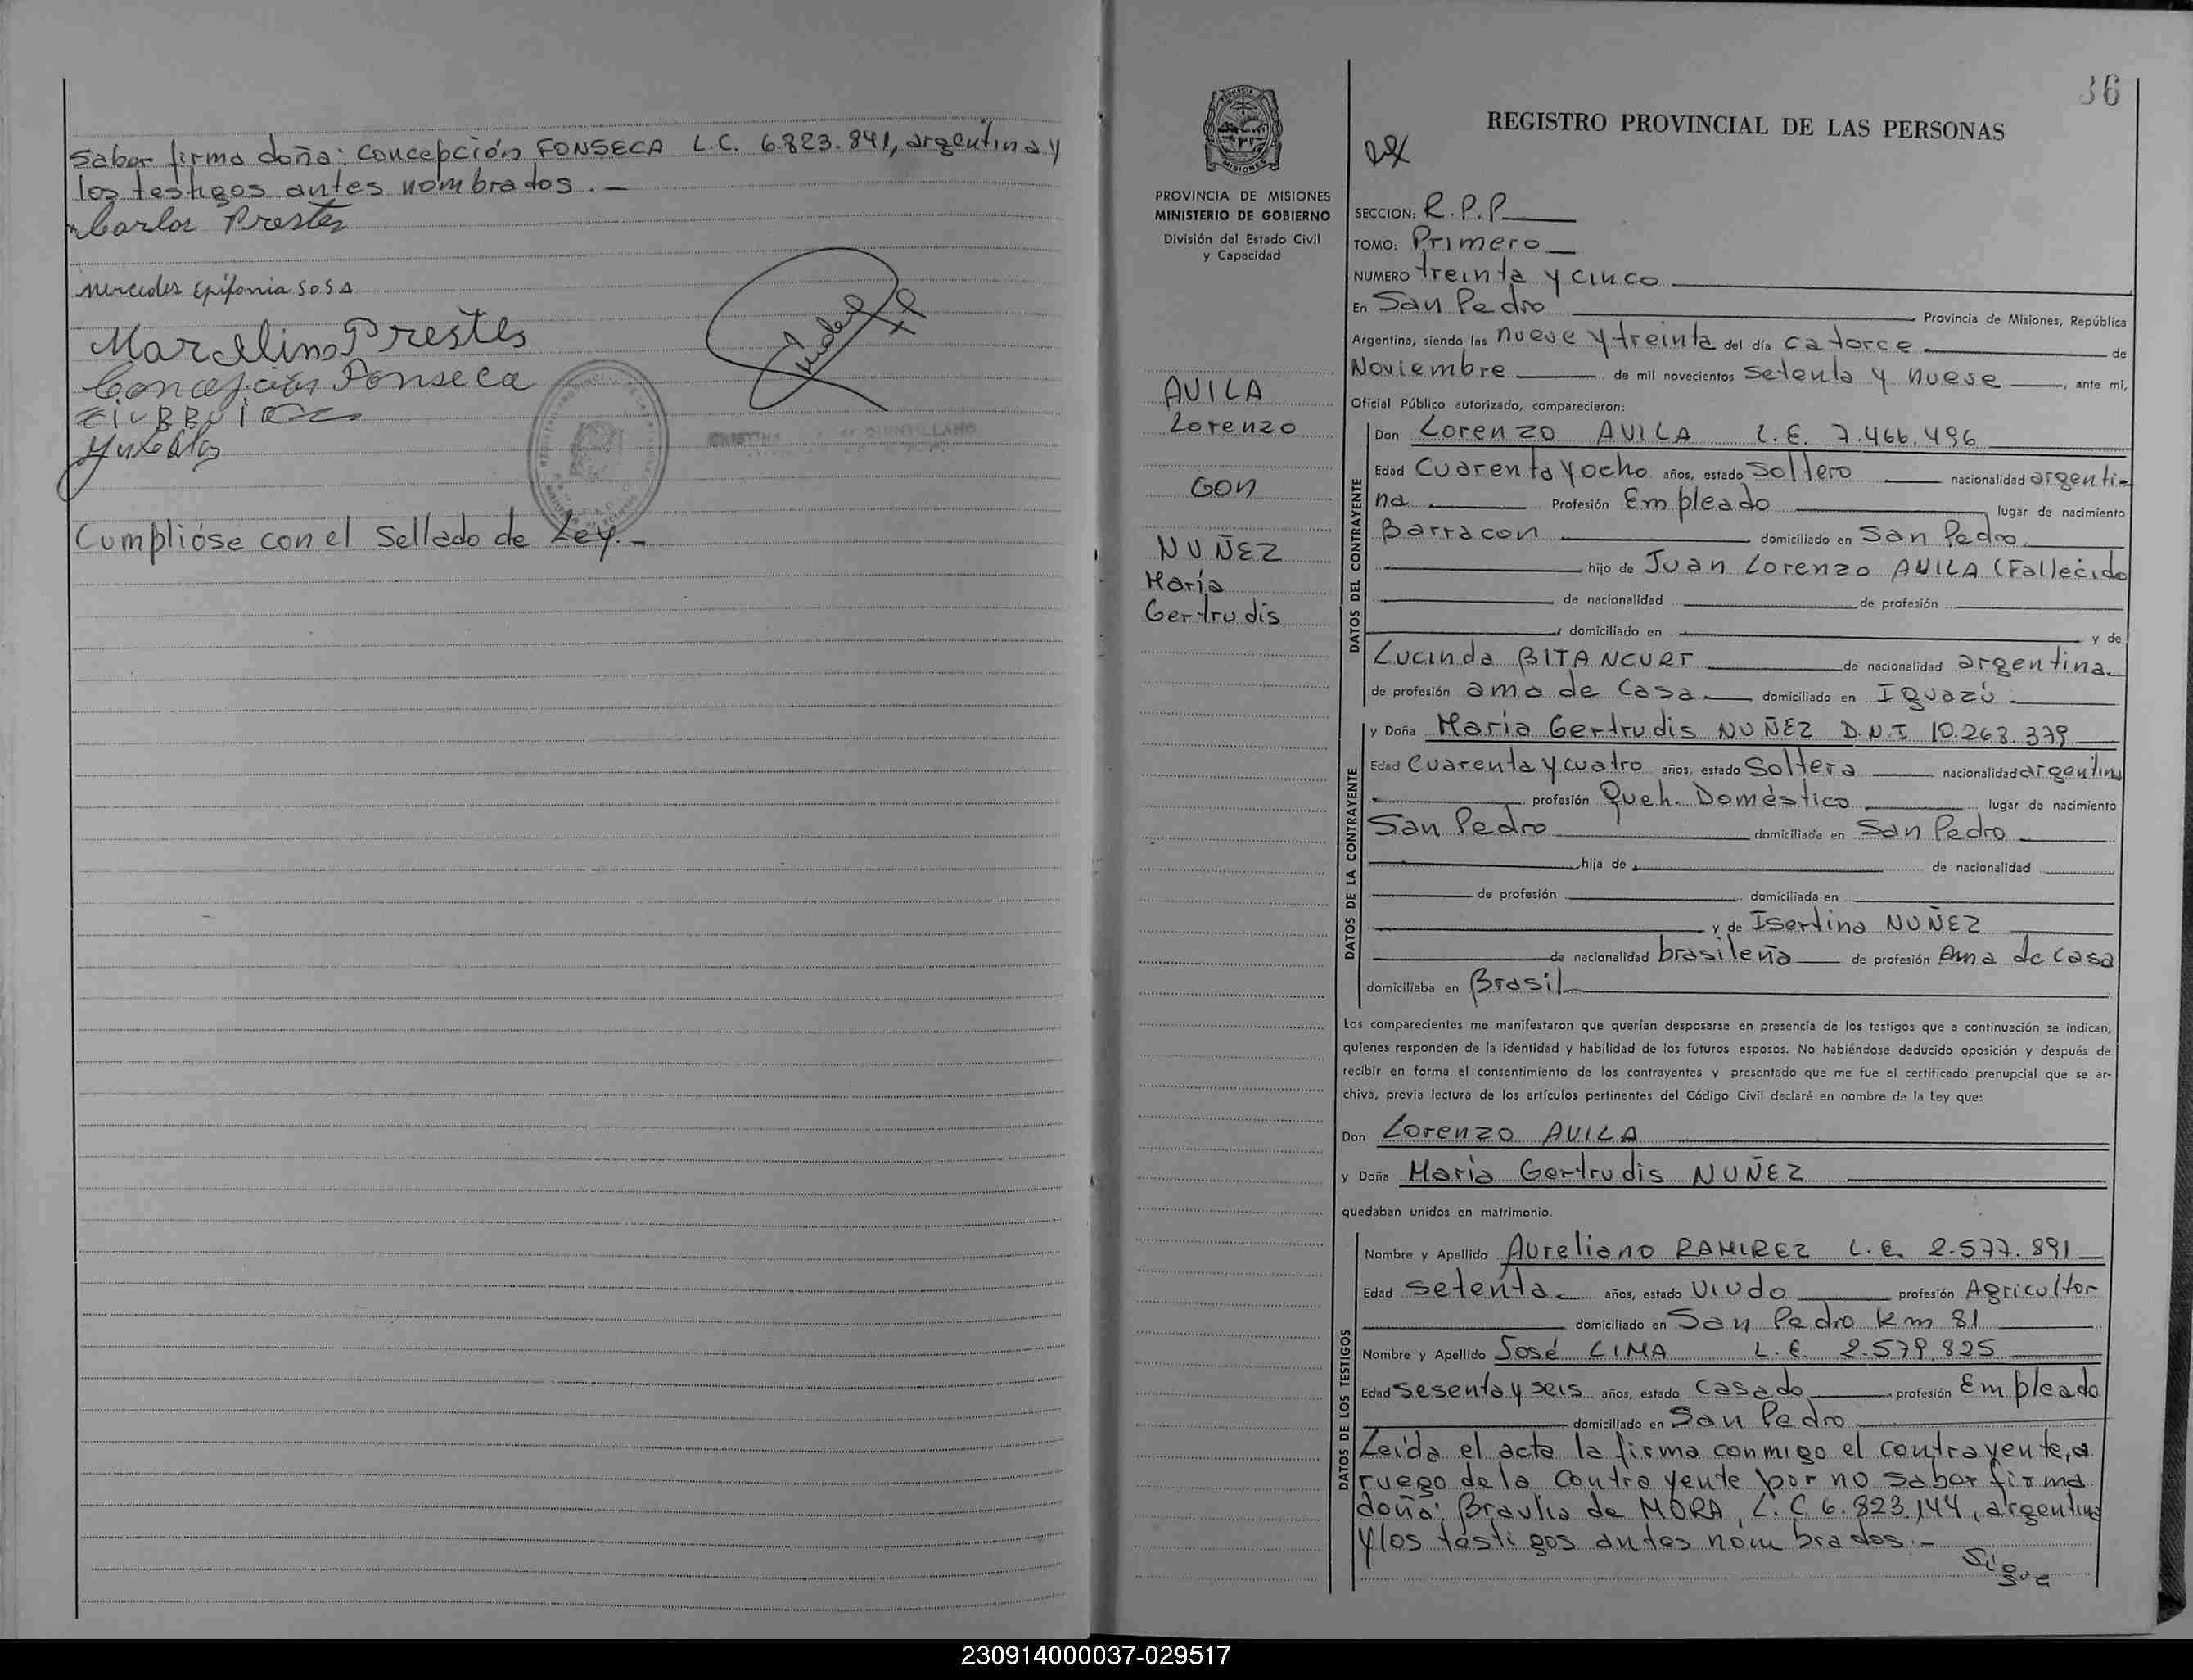 Saber firma doña: Concepción FONSECA L.C. 6.823.841, argentina y
los testigos antes nombrados.-
Carlos Prestes
Mercedes Epifonia SOSA
Marcelino Prestes
Concepción Fonseca
Cumplióse con el Sellado de Ley.-
36
REGISTRO PROVINCIAL DE LAS PERSONAS
PROVINCIA DE MISIONES
MINISTERIO DE GOBIERNO
División del Estado Civil
y Capacidad
AVILA
Lorenzo
con
NUÑEZ
María
Gertrudis
SECCION: R.P.P
TOMO: Primero
NUMERO treinta y cinco
En San Pedro Provincia de Misiones, República
Argentina, siendo las nueve y treinta del día catorce de
Noviembre de mil novecientos setenta y nueve, ante mí,
Oficial Público autorizado, comparecieron:
DATOS DEL CONTRAYENTE
Don Lorenzo AVILA L.E. 7.466.496
Edad Cuarenta y ocho años, estado Soltero nacionalidad argenti-
na Profesión Empleado lugar de nacimiento
Barracon domiciliado en San Pedro
hijo de Juan Lorenzo AVILA (Fallecido
de nacionalidad de profesión
domiciliado en y de
Lucinda BITANCURT de nacionalidad argentina
de profesión ama de Casa domiciliado en Iguazú.
DATOS DE LA CONTRAYENTE
y Doña María Gertrudis NUÑEZ D.N.I 10.263.379
Edad Cuarenta y cuatro años, estado Soltera nacionalidad argentina
profesión Queh. Doméstico lugar de nacimiento
San Pedro domiciliada en San Pedro
hija de de nacionalidad
de profesión domiciliada en
y de Isertina NUÑEZ
de nacionalidad brasileña de profesión Ama de Casa
domiciliaba en Brasil
Los comparecientes me manifestaron que querían desposarse en presencia de los testigos que a continuación se indican,
quienes responden de la identidad y habilidad de los futuros esposos. No habiéndose deducido oposición y después de
recibir en forma el consentimiento de los contrayentes y presentado que me fue el certificado prenupcial que se ar-
chiva, previa lectura de los artículos pertinentes del Código Civil declaré en nombre de la Ley que:
Don Lorenzo AVILA
y Doña María Gertrudis NUÑEZ
quedaban unidos en matrimonio.
DATOS DE LOS TESTIGOS
Nombre y Apellido Aureliano RAMIREZ L.E. 2.577.891
Edad setenta años, estado Viudo profesión Agricultor
domiciliado en San Pedro Km 81
Nombre y Apellido José LIMA L.E. 2.579.825
Edad sesenta y seis años, estado Casado profesión Empleado
domiciliado en San Pedro
Leída el acta la firma conmigo el contrayente, a
ruego de la Contrayente por no saber firma
doña: Braulia de MORA, L.C 6.823.144, argentina
y los testigos antes nombrados.-
Sigue
230914000037-029517